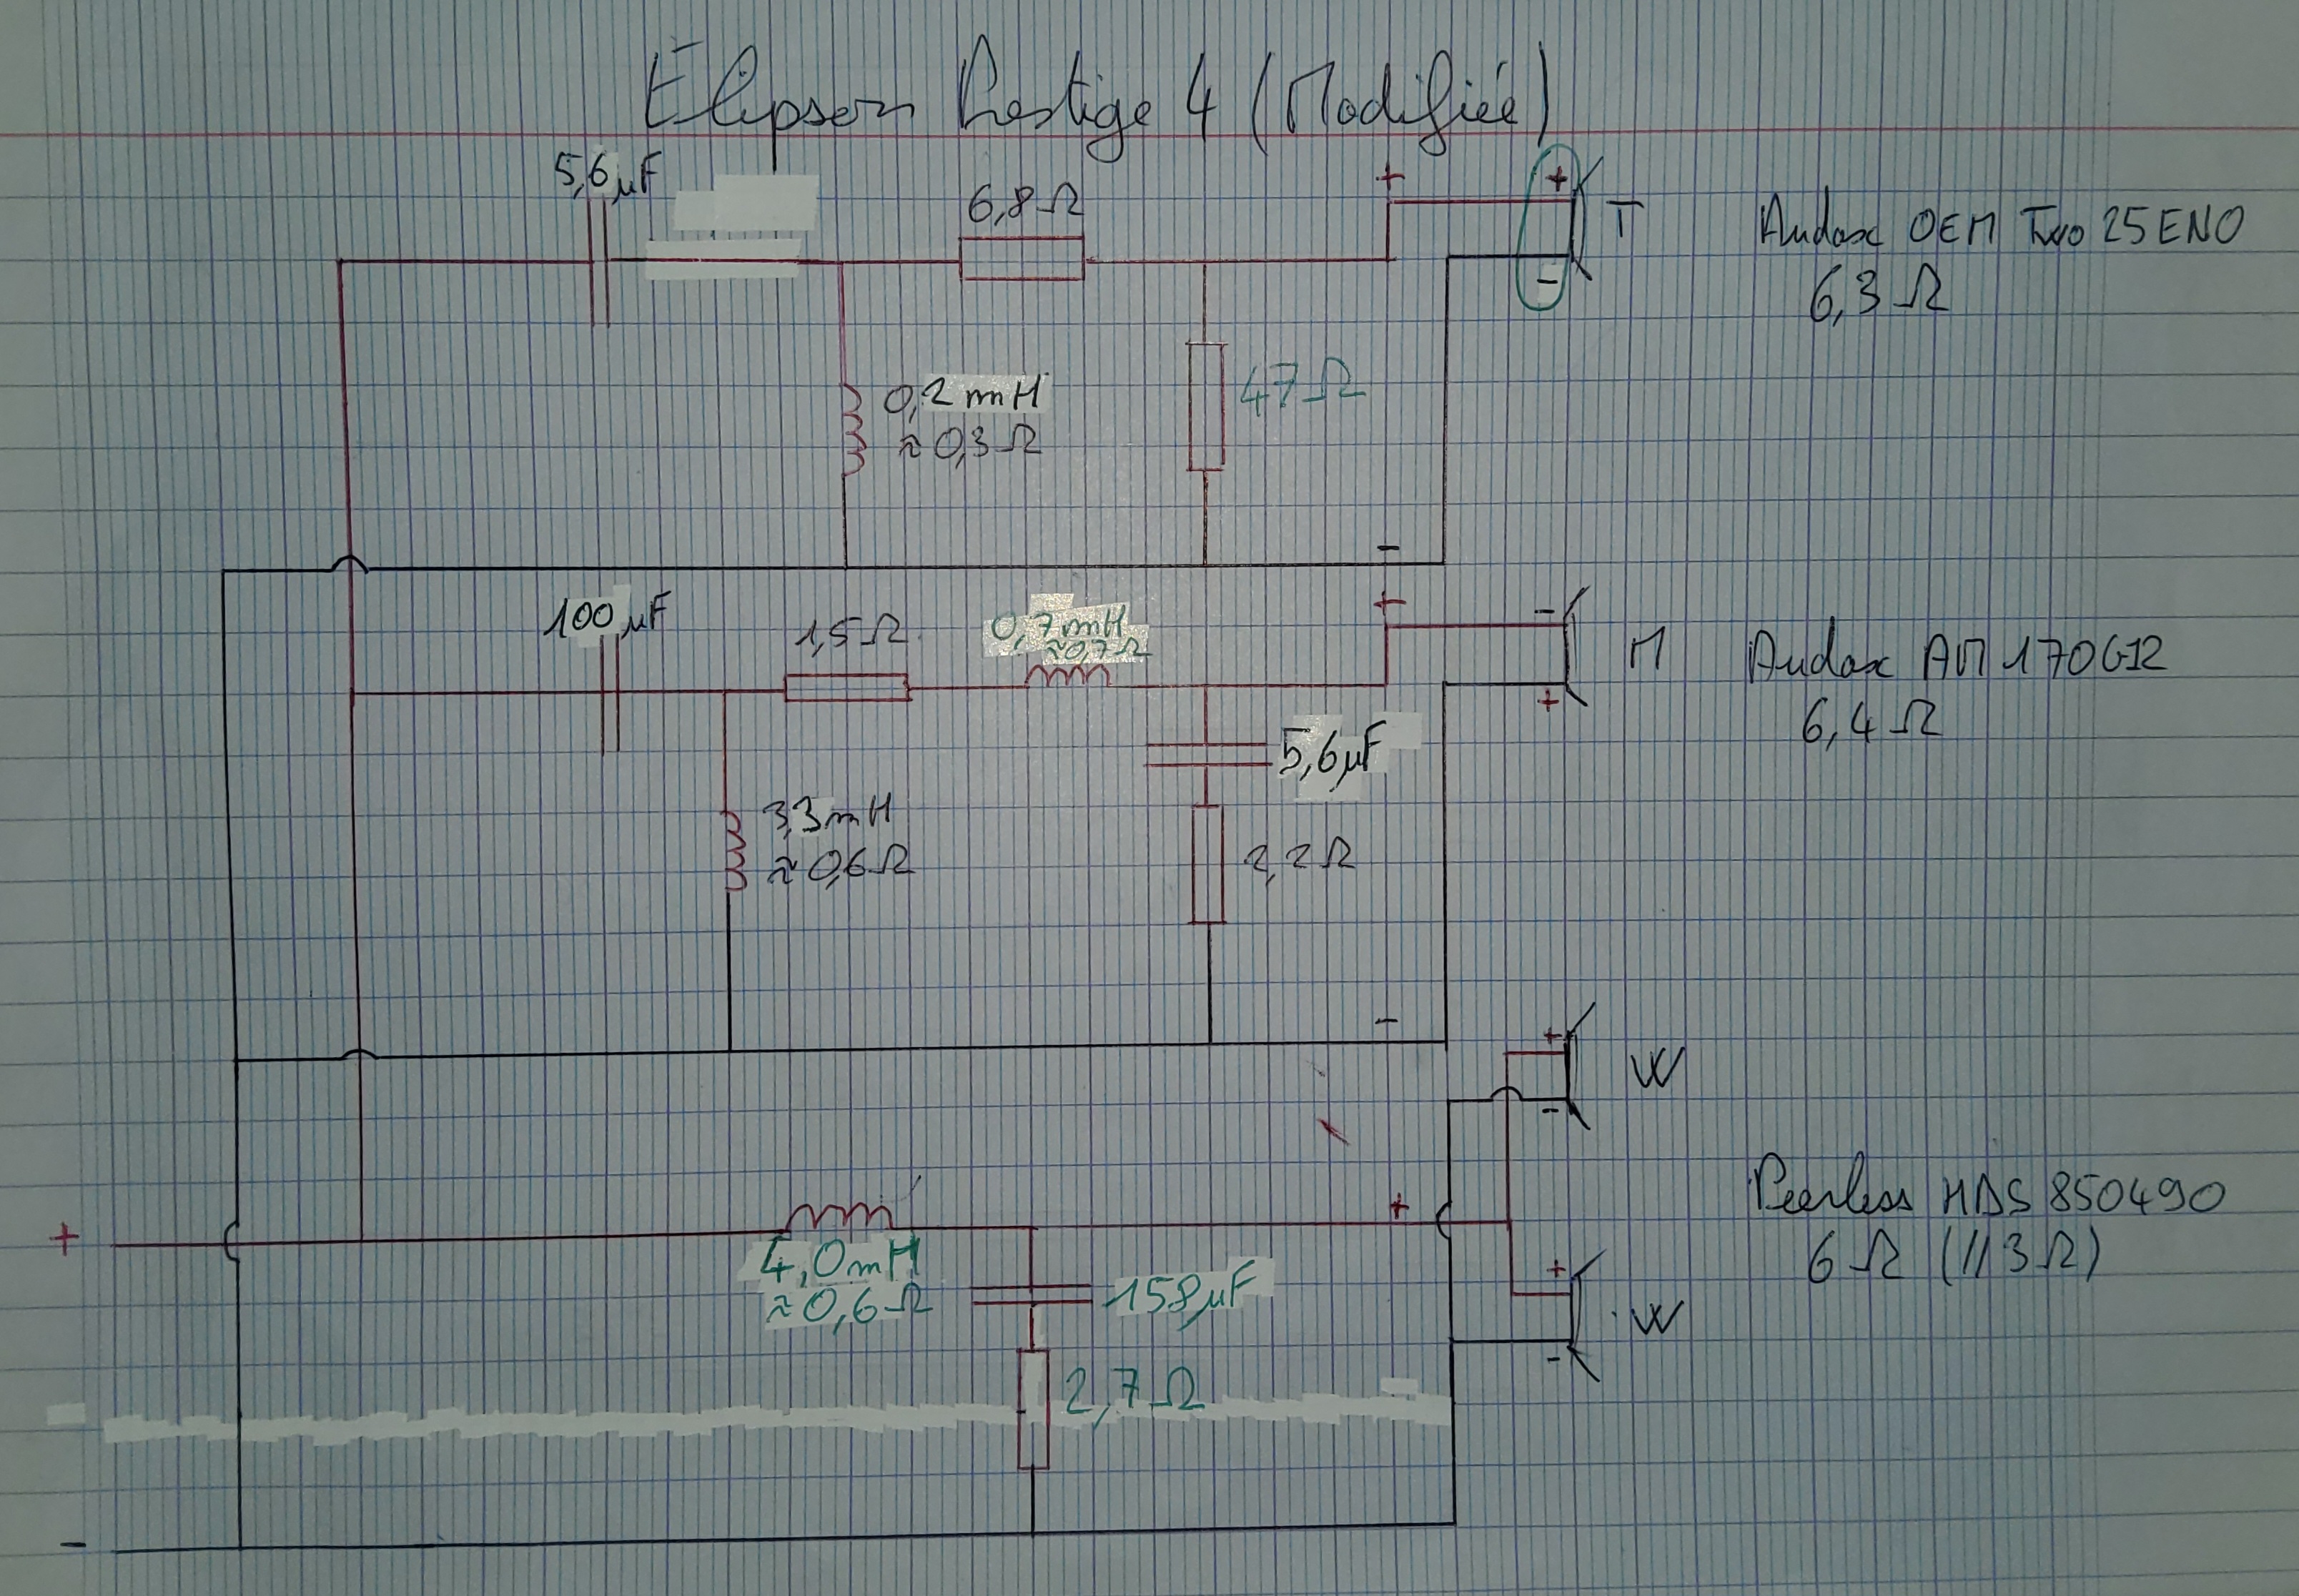 Elipson Prestige 4 (Modifiée)
5,6µF
6,8Ω
+
+
T
Audax OEM Two 25ENO
6,3 Ω
-
0,2 mH
≈ 0,3 Ω
47Ω
-
100µF
1,5Ω
0,7mH
≈0,7Ω
+
-
M
Audax AM 170G12
6,4 Ω
+
5,6µF
3,3mH
≈ 0,6Ω
2,2Ω
-
+
W
-
Peerless HDS 850490
6 Ω (//3Ω)
+
+
4,0mH
≈0,6Ω
158µF
+
W
-
2,7Ω
-